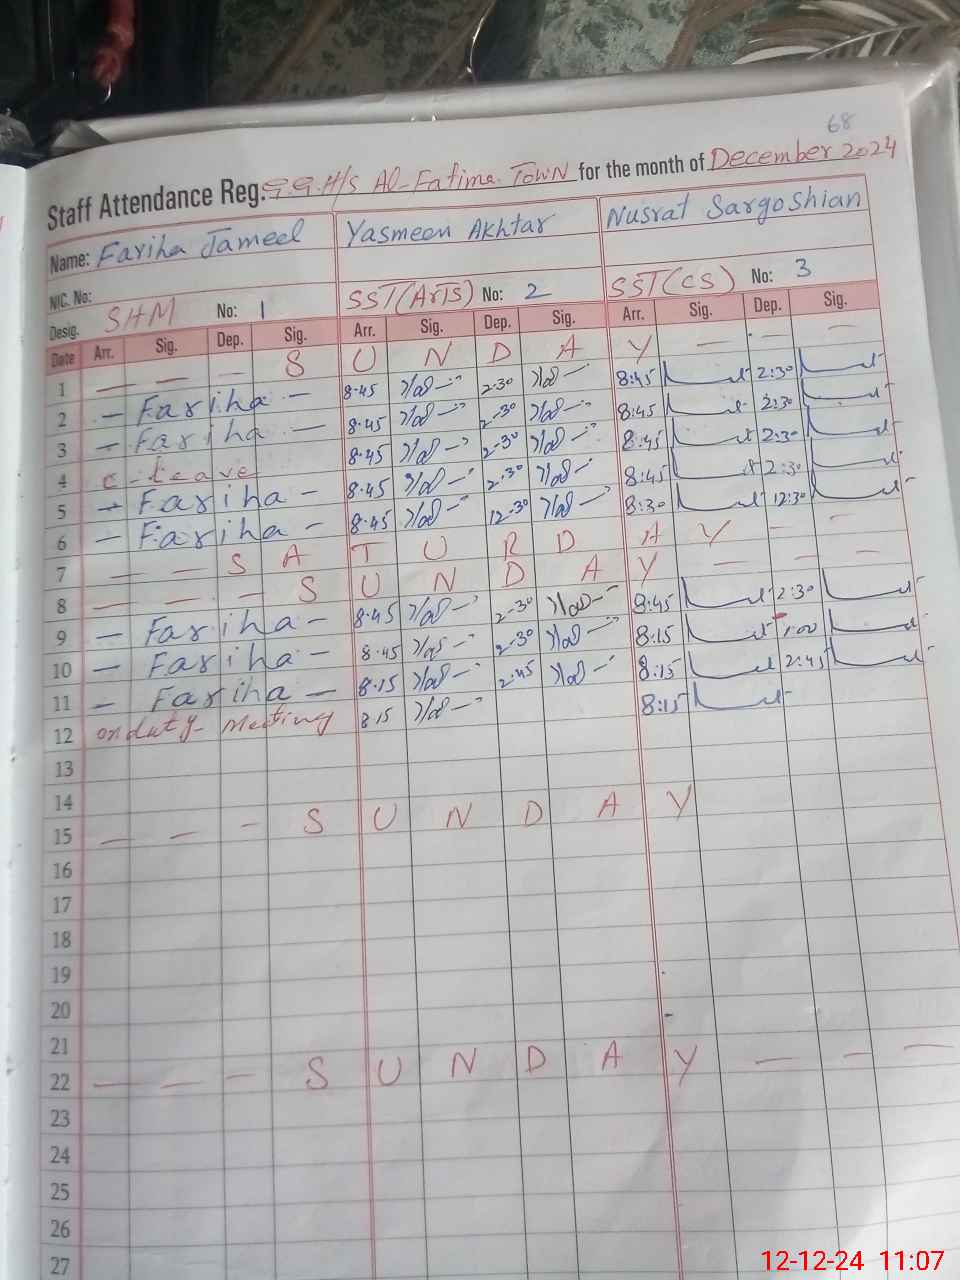 68
Staff Attendance Reg. G.G.H/S Al-Fatima Town for the month of December 2024
Name: Fariha Jameel Yasmeen Akhtar Nusrat Sargoshian
NIC. No:
Desig. SHM No: 1 SST(Arts) No: 2 SST(CS) No: 3
Date Arr. Sig. Dep. Sig. Arr. Sig. Dep. Sig. Arr. Sig. Dep. Sig.
1 — — — S U N D A Y — - —
2 - Fariha - 8.45 2.30 8:45 2:30
3 - Fariha - 8.45 2-30 8:45 2:30
4 C-Leave 8.45 2-30 8:45 2:30
5 - Fariha - 8.45 2.30 8:45 2:30
6 - Fariha - 8.45 12-30 8:30 12:30
7 — — S A T U R D A Y - -
8 — — - S U N D A Y — — —
9 - Fariha - 8.45 2-30 8:45 2:30
10 - Fariha - 8.45 2-30 8:15 1:00
11 - Fariha - 8.15 2.45 8:15 2:45
12 on duty Meeting 8.15 8:15
13
14
15 — — - S U N D A Y
16
17
18
19
20
21
22 — — - S U N D A Y — - —
23
24
25
26
27
12-12-24 11:07